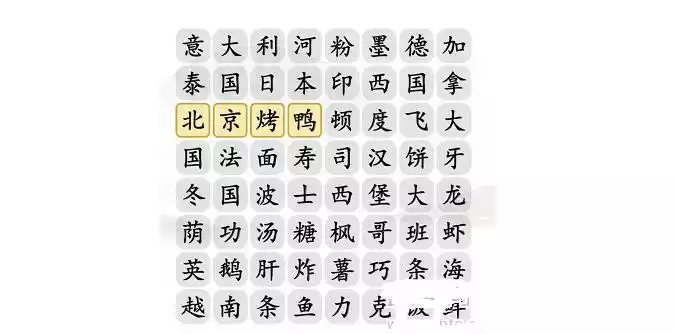 意大利河粉墨德加
泰国日本印西国拿
北京烤鸭顿度飞大
国法面寿司汉饼牙
冬国波士西堡大龙
荫功汤糖枫哥班虾
英鹅肝炸薯巧条海
越南条鱼力克饭鲜